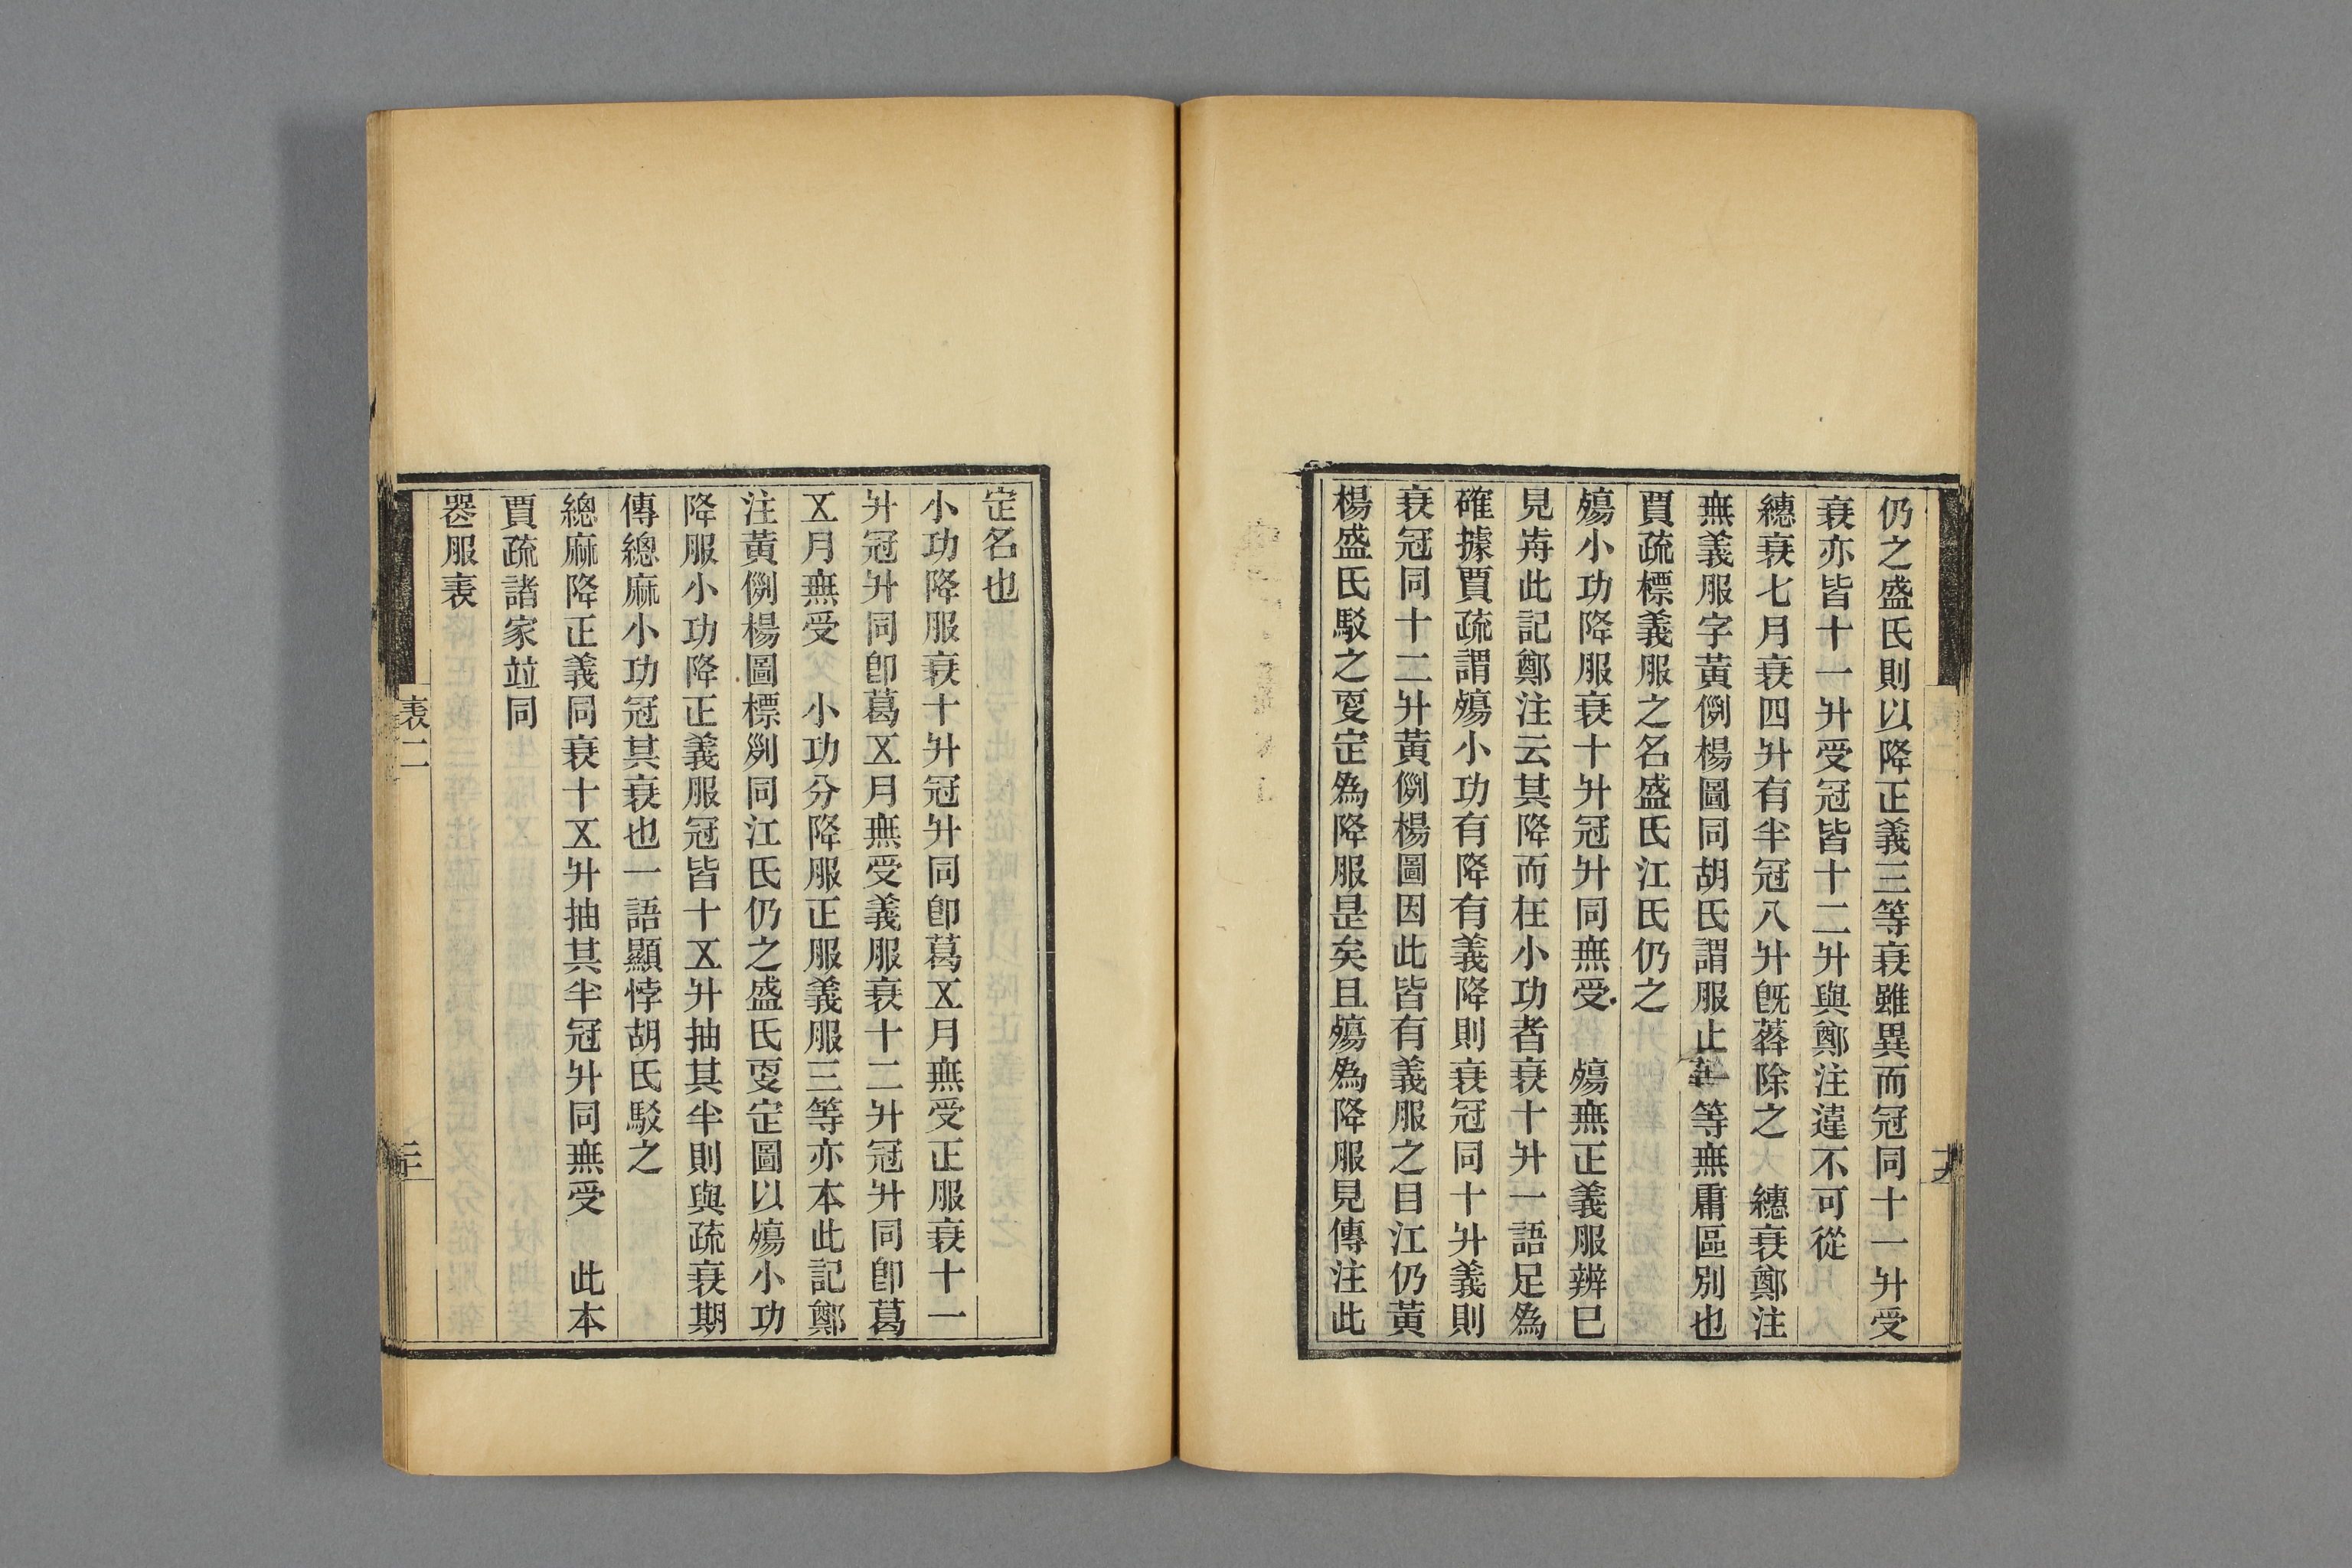 仍之盛氏則以降正義三等衰雖異而冠同十一升受
衰亦皆十一升受冠皆十二升與鄭注違不可從
繐衰七月衰四升有半冠八升既葬除之　繐衰鄭注
無義服字黃例楊圖同胡氏謂服止一等無庸區別也
賈疏標義服之名盛氏江氏仍之
殤小功降服衰十升冠升同無受　殤無正義服辨巳
見歬此記鄭注云其降而在小功者衰十升一語足為
確據賈疏謂殤小功有降有義降則衰冠同十升義則
衰冠同十二升黃例楊圖因此皆有義服之目江仍黃
楊盛氏駁之㪅定為降服是矣且殤為降服見傳注此
定名也
小功降服衰十升冠升同卽葛五月無受正服衰十一
升冠升同卽葛五月無受義服衰十二升冠升同卽葛
五月無受　小功分降服正服義服三等亦本此記鄭
注黃例楊圖標列同江氏仍之盛氏㪅定圖以殤小功
降服小功降正義服冠皆十五升抽其半則與疏衰期
傳緦麻小功冠其衰也一語顯悖胡氏駁之
緦麻降正義同衰十五升抽其半冠升同無受　此本
賈疏諸家竝同
喪服表
表二
二十